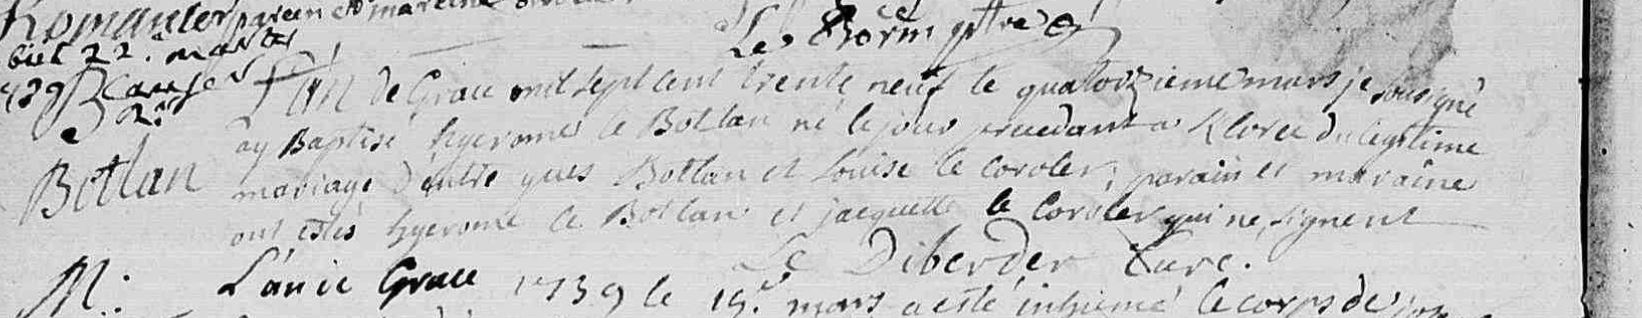 Romanter parein et mareine
Le Borm ptre
L'an de Grace mil sept cent trente neuf le quatorzieme mars je sousigné
ay Baptisé hyerome le Bottlan né le jour precedant a Klorec du legitime
Bottlan
mariage d'entre yues Bottlan et Louise le Coroler; parain et maraine
ont estés hyerome le Bottlan et jacquette le Coroler qui ne signent
Le Diberder Cure.
M: L'an de Grace 1739 le 19e mars a esté inhumé le corps de